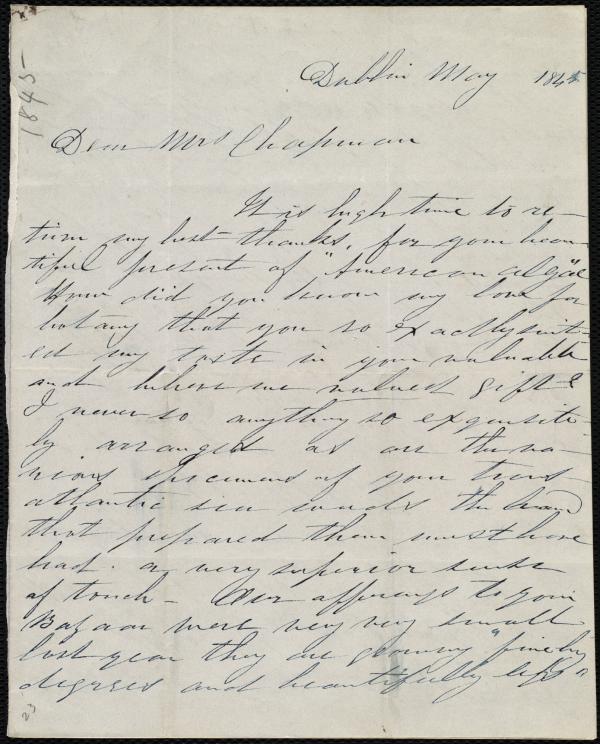 1845-
Dublin May 1845
Dear Mrs Chapman
It is high time to re-
turn my best thanks, for your beau-
tiful present of "American algae"
How did you know my love for
botany that you so exactly suit-
ed my taste in your valuable
and believe me valued gift?
I never so anything so exquisite-
ly arranged as are the va-
rious specimens of your trans-
atlantic sea weeds the hand
that prepared them must have
had a very superior sense
of touch - Our offerings to your
Bazaar were very very small
last year they are growing "fine by
degrees and beautifully less"
23